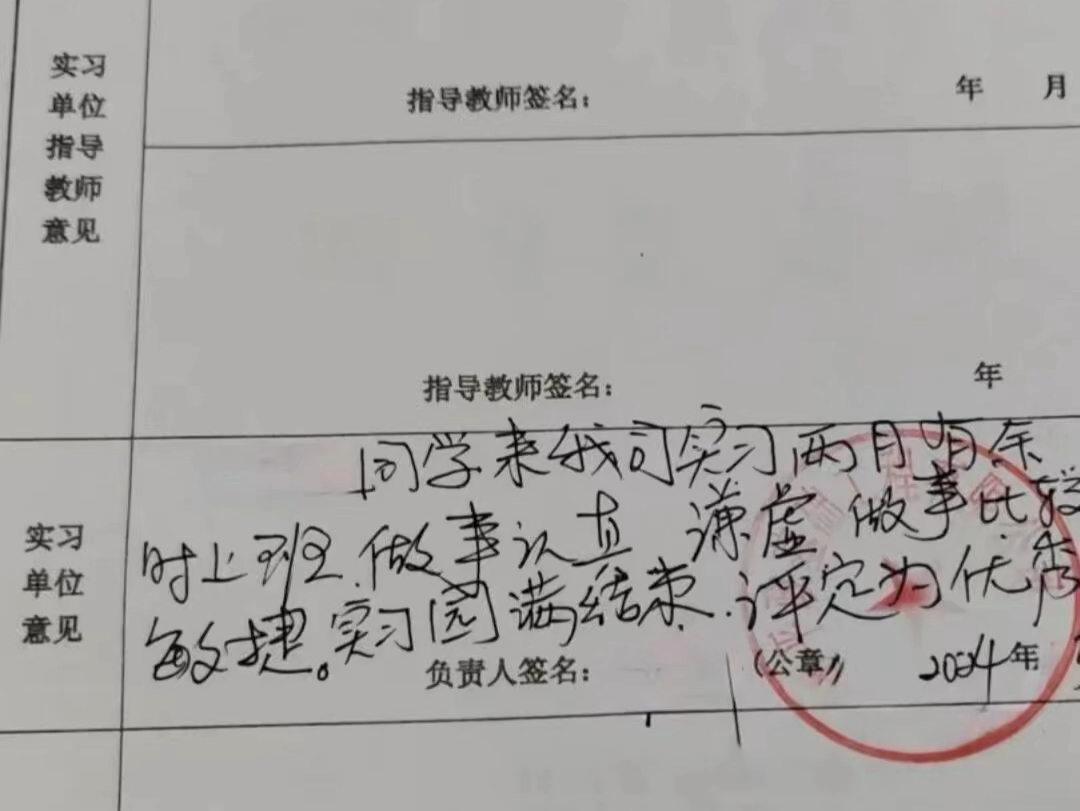 实习
单位
指导
教师
意见
指导教师签名:
年 月
指导教师签名:
年
实习
单位
意见
同学来我司实习两月有余
时上班、做事认真 谦虚 做事比较
敏捷。实习圆满结束、评定为优秀
负责人签名:
(公章) 2024年